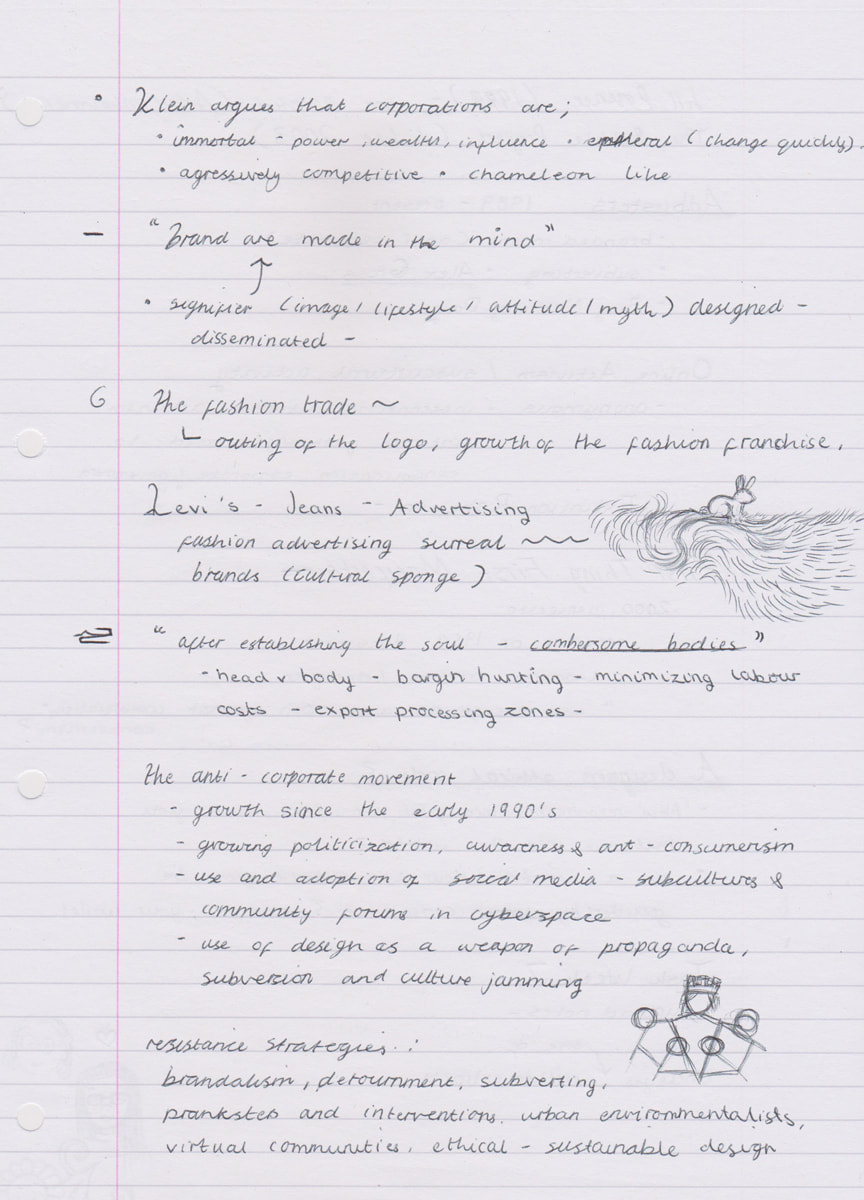 • Klein argues that corporations are;
• immortal - power, wealth, influence • (change quickly).
• agressively competitive • chameleon like
- "Brand are made in the mind"
• signifier (image / lifestyle / attitude / myth) designed -
disseminated -
The fashion trade ~
outing of the logo, growth of the fashion franchise.
Levi's - Jeans - Advertising
fashion advertising surreal
brands (cultural sponge)
"after establishing the soul - combersome bodies"
- head v body - bargin hunting - minimizing labour
costs - export processing zones -
the anti - corporate movement
- growth since the early 1990's
- growing politicization, awareness & ant - consumerism
- use and adoption of social media - subcultures &
community forums in cyberspace
- use of design as a weapon of propaganda,
subversion and culture jamming
resistance strategies:
brandalism, detournment, subverting,
pranksters and interventions, urban environmentalists,
virtual communities, ethical - sustainable design